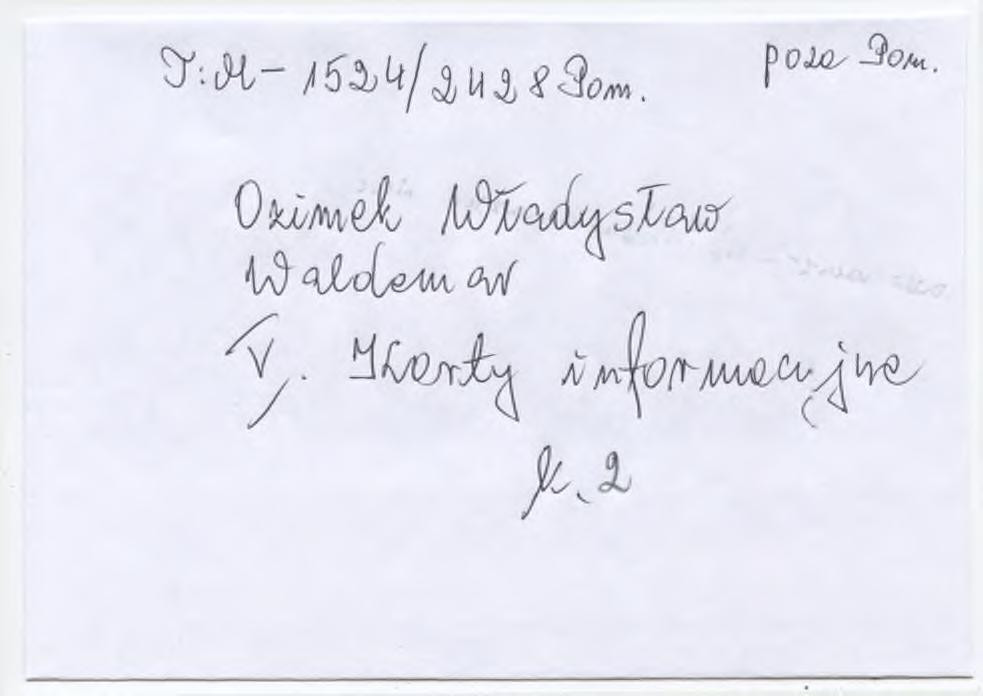 T: M - 1524/2428 Pom.
poza Pom.
Ozimek Władysław
Waldemar
V. Karty informacyjne
k. 2